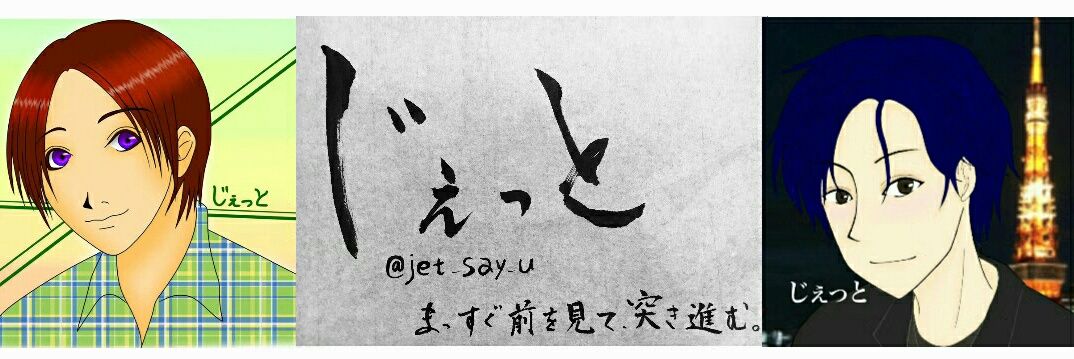 じぇっと
じぇっと
@jet_say_u
まっすぐ前を見て、突き進む。
じぇっと